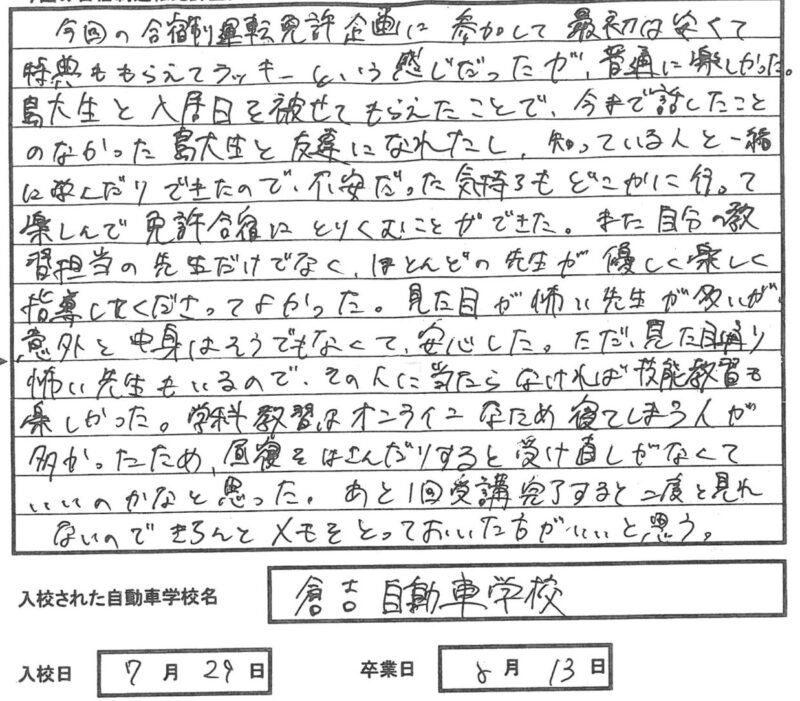 今回の合宿制運転免許企画に参加して最初は安くて
特典ももらえてラッキーという感じだったが、普通に楽しかった。
島大生と入居日を被せてもらえたことで、今まで話したこと
のなかった島大生と友達になれたし、知っている人と一緒
に学んだりできたので、不安だった気持ちもどこかに行って
楽しんで免許合宿にとりくむことができた。また自分の教
習担当の先生だけでなく、ほとんどの先生が優しく楽しく
指導してくださってよかった。見た目が怖い先生が多いが、
意外と中身はそうでもなくて、安心した。ただ、見た目通り
怖い先生もいるので、その人に当たらなければ技能教習も
楽しかった。学科教習はオンラインなため寝てしまう人が
多かったため、昼寝をはさんだりすると受け直しがなくて
いいのかなと思った。あと1回受講完了すると二度と見れ
ないのできちんとメモをとっておいた方がいいと思う。
入校された自動車学校名 倉吉自動車学校
入校日 7月29日 卒業日 8月13日